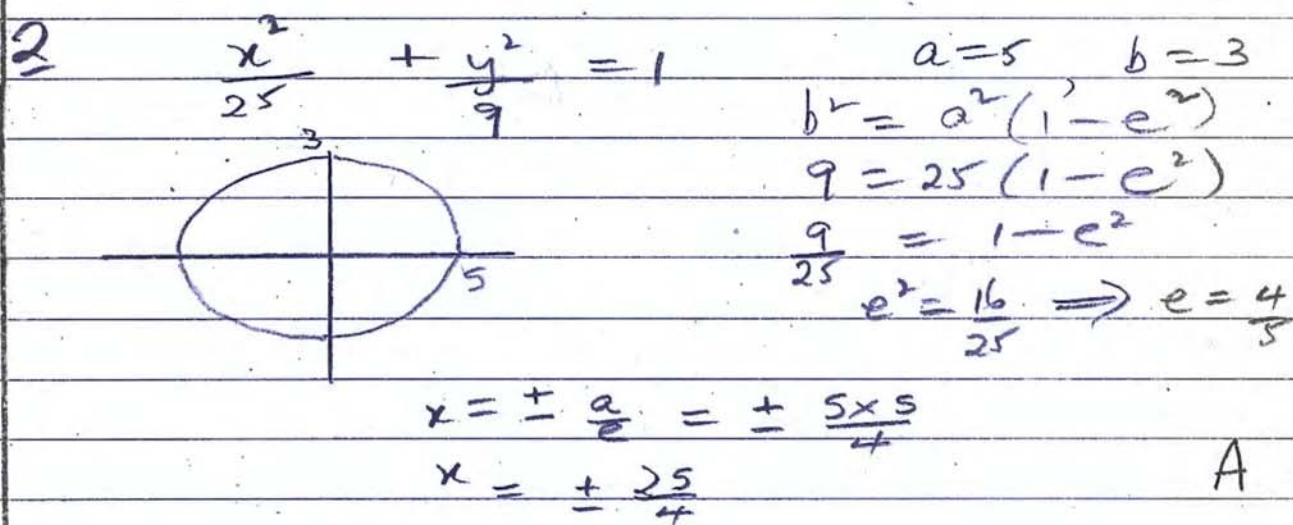 2 x²/25 + y²/9 = 1 a = 5, b = 3
b² = a²(1 - e²)
9 = 25(1 - e²)
9/25 = 1 - e²
e² = 16/25 ⟹ e = 4/5
3
5
x = ± a/e = ± 5×5/4
x = ± 25/4
A